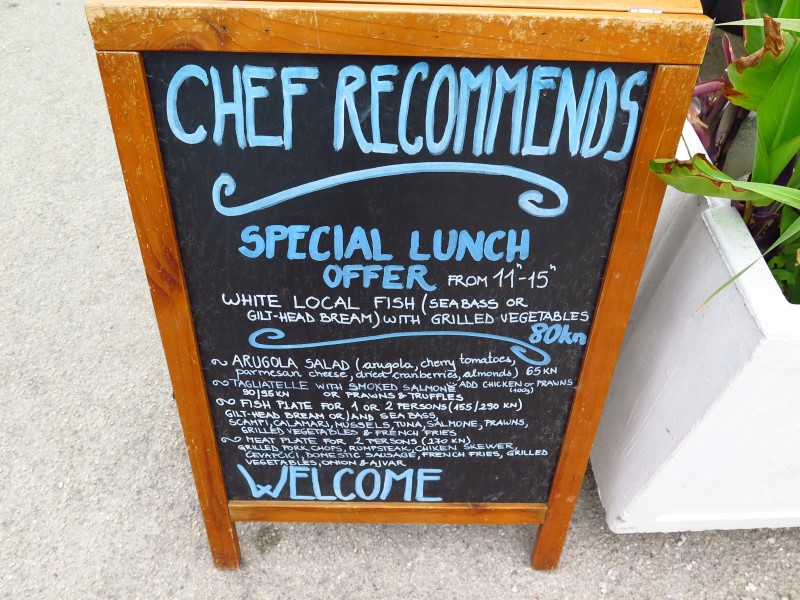 CHEF RECOMMENDS
SPECIAL LUNCH
OFFER FROM 11"-15"
WHITE LOCAL FISH (SEABASS OR
GILT-HEAD BREAM) WITH GRILLED VEGETABLES
80kn
~ ARUGOLA SALAD (arugola, cherry tomatoes,
parmesan cheese, dried cranberries, almonds) 65 KN
~ TAGLIATELLE WITH SMOKED SALMONE ADD CHICKEN OR PRAWNS
90/95KN OR PRAWNS & TRUFFLES (100g)
~ FISH PLATE FOR 1 OR 2 PERSONS (155/290 KN)
GILT-HEAD BREAM OR/AND SEA BASS,
SCAMPI, CALAMARI, MUSSELS, TUNA, SALMONE, PRAWNS,
GRILLED VEGETABLES & FRENCH FRIES
~ MEAT PLATE FOR 2 PERSONS (270 KN)
GRILLED PORK CHOPS, RUMPSTEAK, CHIKEN SKEWER,
ĆEVAPČIĆI, DOMESTIC SAUSAGE, FRENCH FRIES, GRILLED
VEGETABLES, ONION & AJVAR
WELCOME